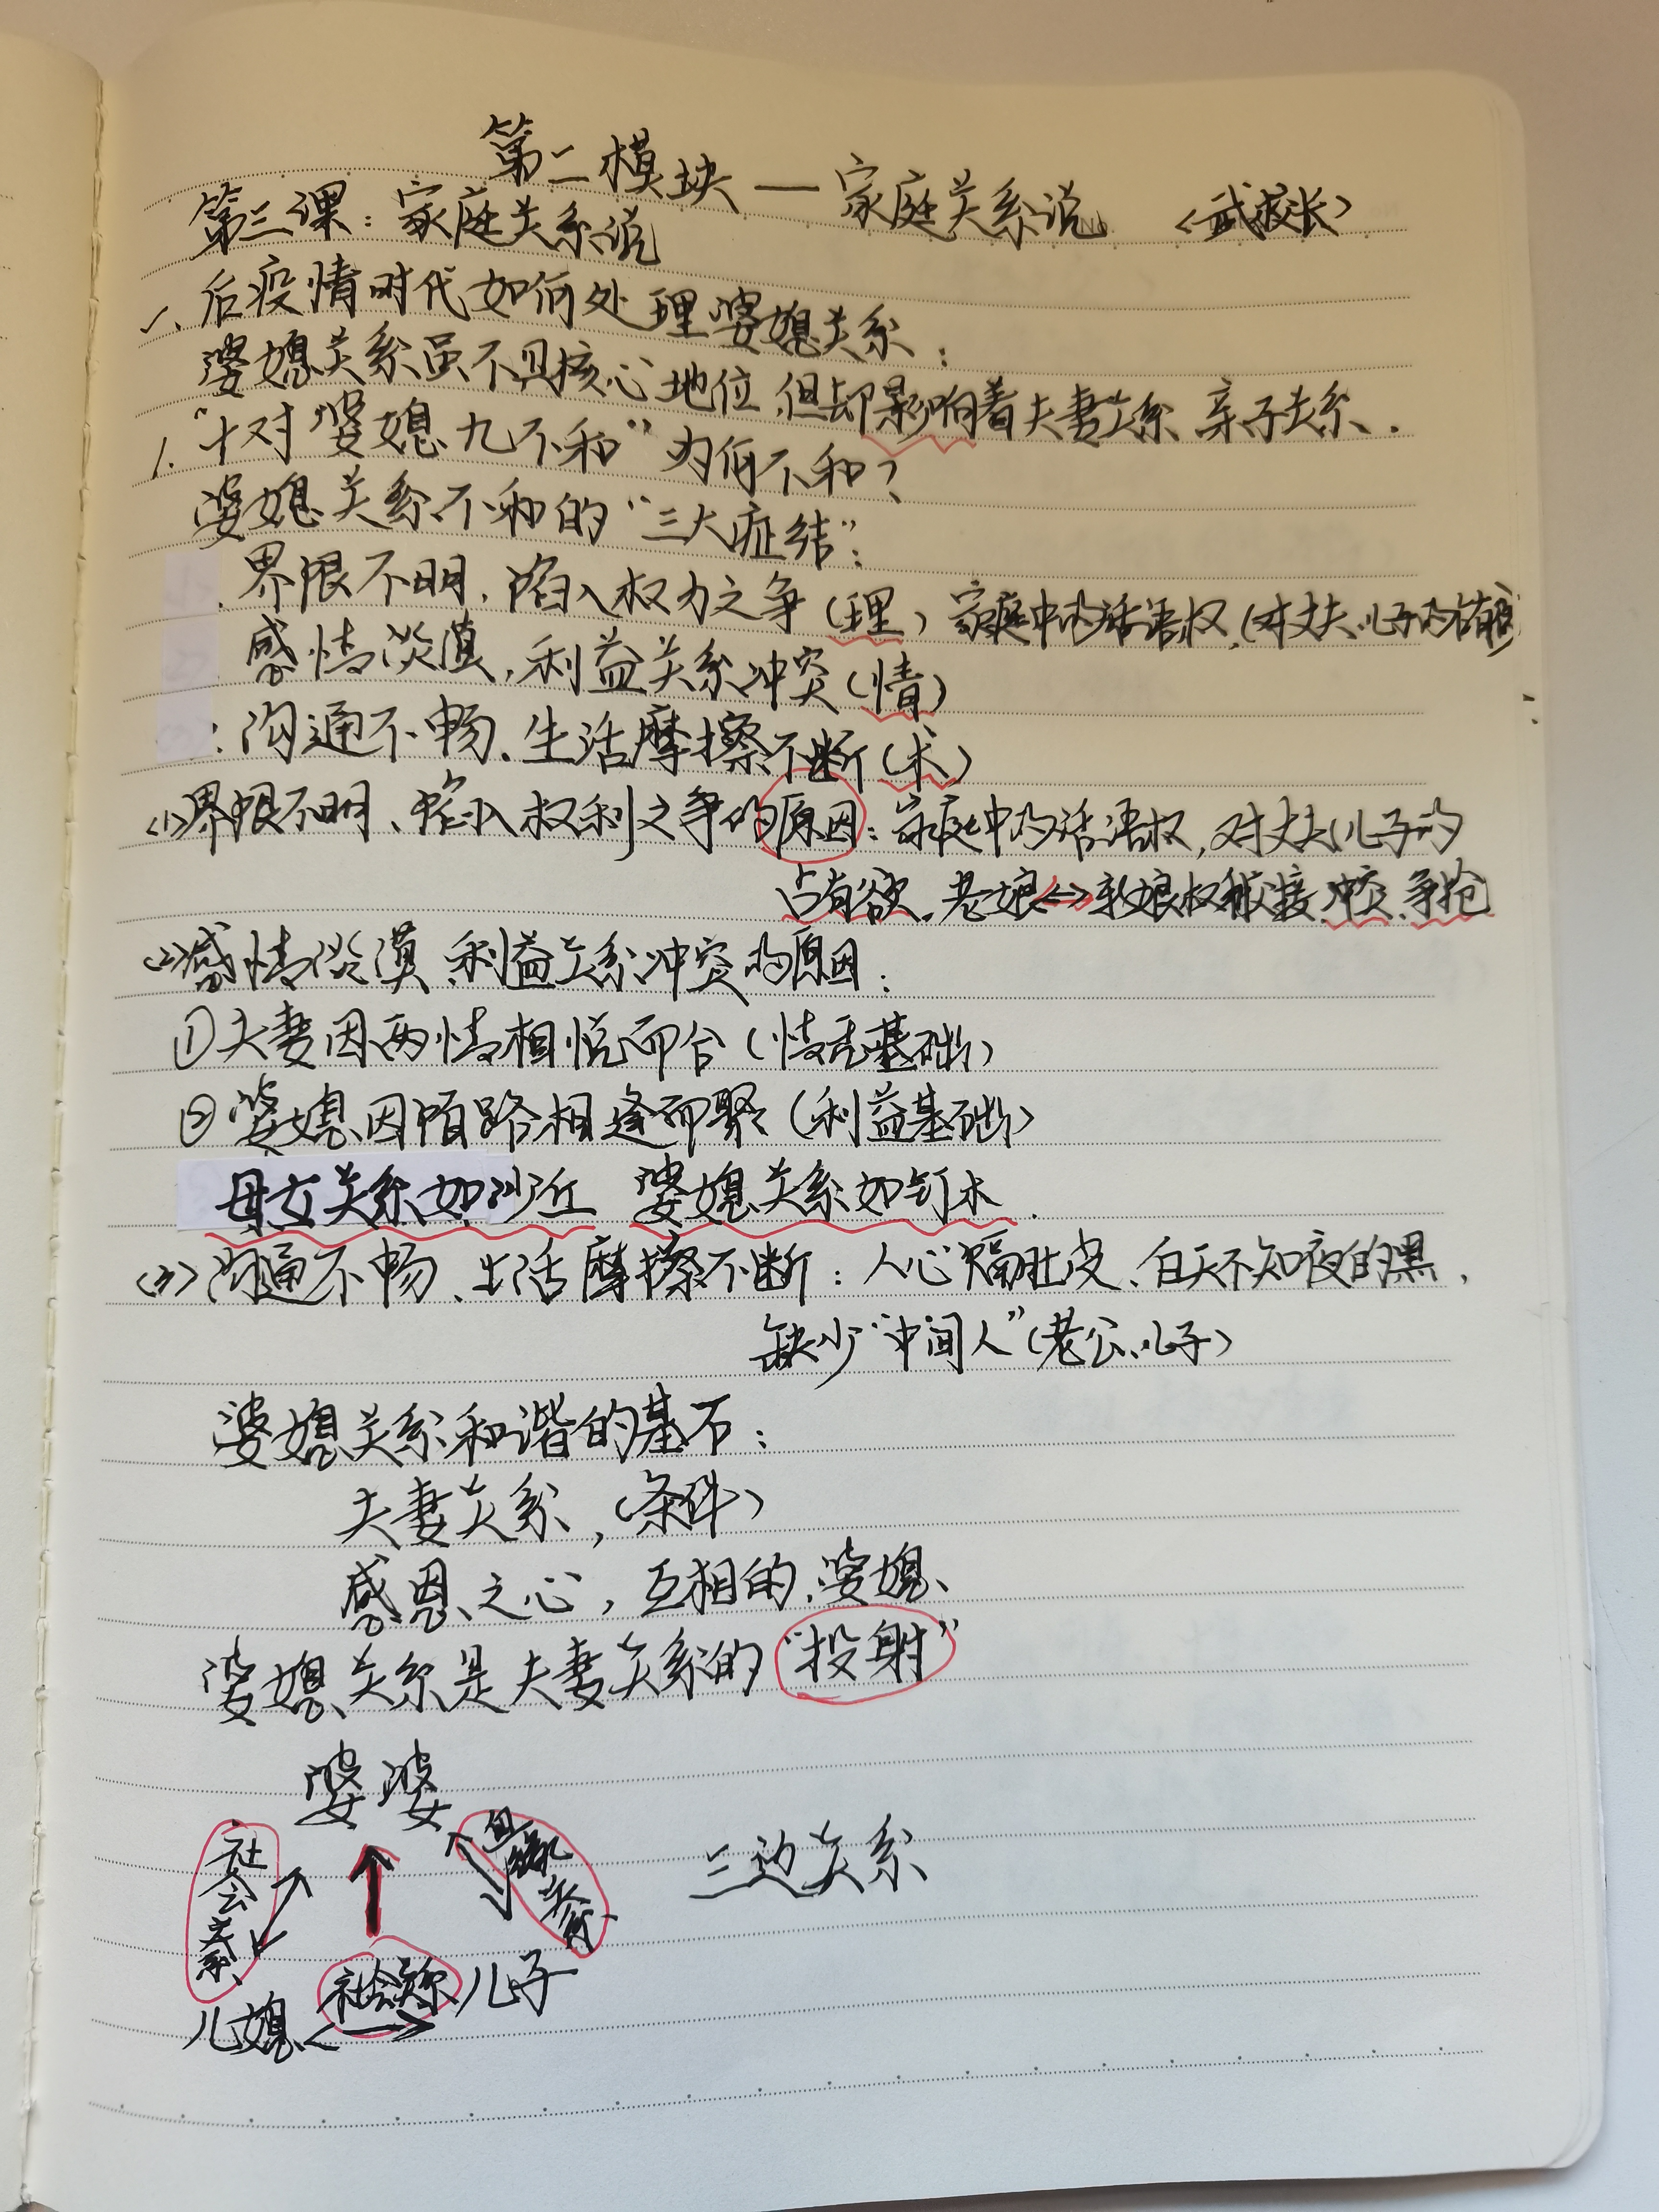 第二模块—家庭关系说 <武校长>
第三课：家庭关系说
一、后疫情时代如何处理婆媳关系：
婆媳关系虽不具核心地位，但却影响着夫妻关系 亲子关系.
1. "十对婆媳九不和" 为何不和？
婆媳关系不和的"三大症结"：
界限不明，陷入权力之争（理）家庭中的话语权，(对丈夫、儿子的占有欲)
感情淡漠，利益关系冲突（情）
：沟通不畅，生活摩擦不断（术）
<1>界限不明、陷入权利之争的原因：家庭中的话语权，对丈夫儿子的
占有欲，老娘↔新娘权利 接 冲突 争抢
<2>感情淡漠 利益关系冲突的原因：
①夫妻因两情相悦而合（情志基础）
②婆媳因陌路相逢而聚（利益基础）
母女关系如沙丘 婆媳关系如钉木.
<3>沟通不畅、生活摩擦不断：人心隔肚皮、白天不知夜的黑，
缺少"中间人"（老公、儿子）
婆媳关系和谐的基石：
夫妻关系，（条件）
感恩之心，互相的，婆媳、
婆媳关系是夫妻关系的"投射"
婆婆
社会关系
血缘关系
三边关系
社会关系
儿媳 ↔ 儿子